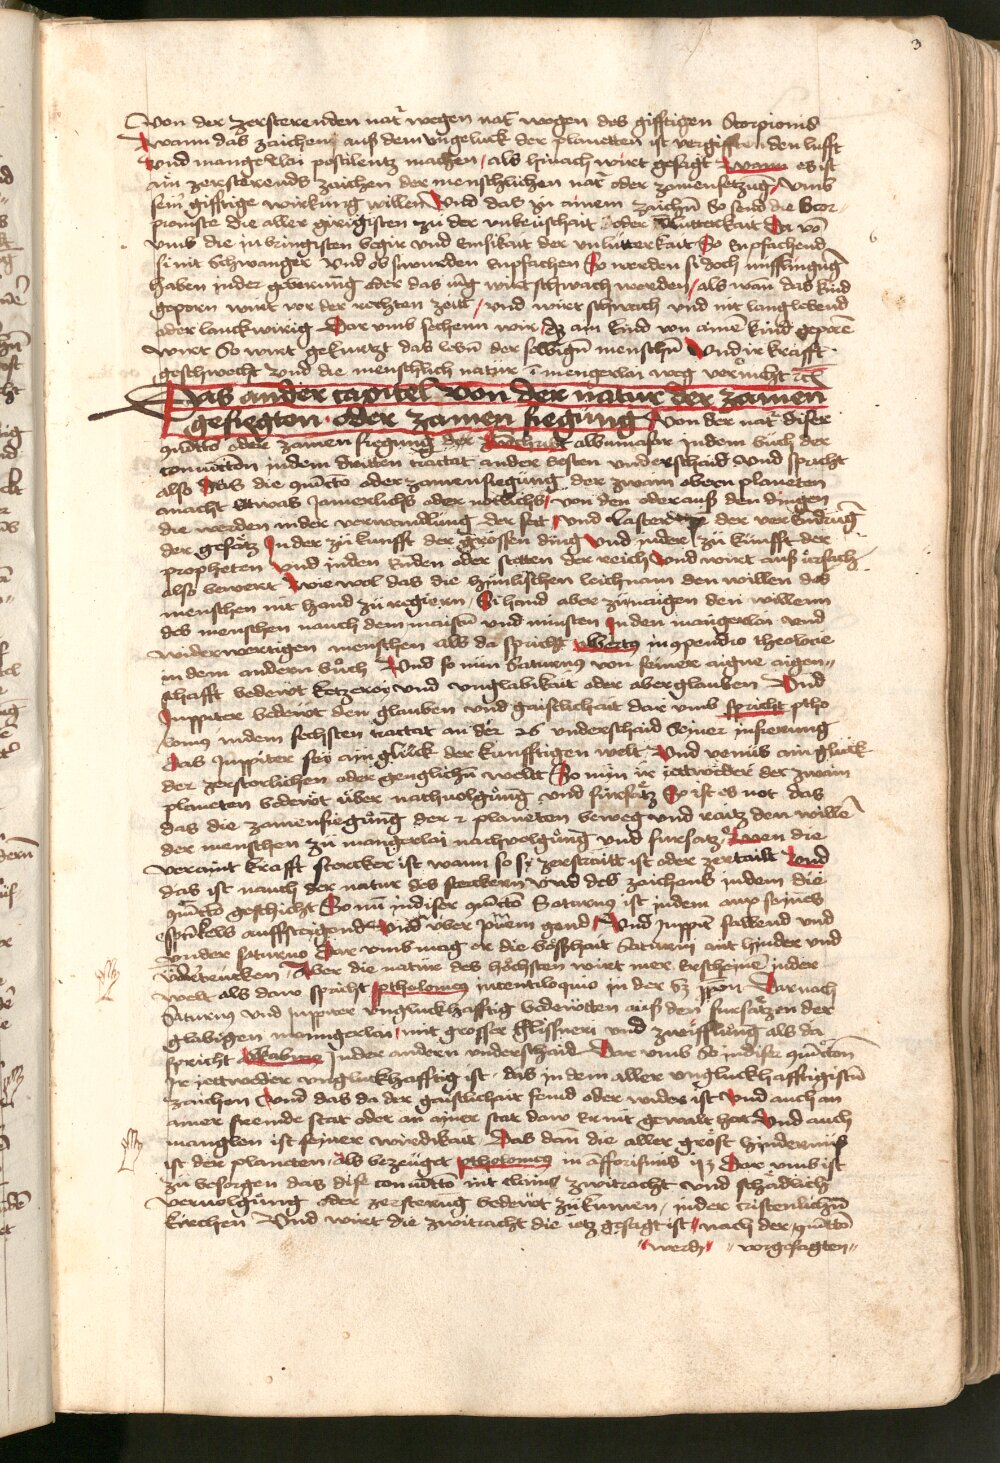 3
Von der zersterenden nat̄ wegen nat̄ wegen des gifftigen Scorpionis
Wann das zaichens auß dem ungeluck der planetten ist vergifften den lufft
Und mangerlai pestilentz machen / als hinach wirt gesagt Wann es ist
ain zersterends zaichen der menschlichen nat̄ oder zamensetzūg / vmb
sein gifftige würkung willen Und das in ainem zaichn̄ So send die Scor-
pioniste die aller girigisten zu der vnkeuschait oder
vmb die inbrüngisten begir vnd emsikait der vnlutterkait So enpfachend
si nit schwanger Und ob si wurden enpfachen So werden si doch
haben in der geberung oder das wirt schwach werden / als wan das kind
geporn wirt vor der rechten zeitt / vnd wirt schwach vnd nit langlebend
oder lanckwirig Dar vmb sechenn wir / dz ain kind von ainē kind geporē
wirt So wirt gekurtzt das lebn̄ der selbign̄ menschn̄ Und ir krafft
geschwecht vnd die menschlich natur ī mengerlai weg vernicht etc̄
Das ander capitel von der natur der zamen
gefiegten oder zamen fiegung Von der nat̄ diser
oder zamen fiegung der albumasar in dem buch der
in dem dritten tractat ander besten vnderschaid Und spricht
also Das die oder zamenfiegung der zwain obern planeten
macht etwas Jamerlichs oder notlichs / von den oder auß den dingen
die werden in der verwandlung der sect / vnd laster der verendrūg
der gesätz In der zu kunfft der grossen ding Und in der zu künfft der
propheten Und in den enden oder stetten der reich Und wirt auß ursach
also bewert Wie wol das die himlischen leichnam den willen des
menschen nit hand zu regiern / Si hand aber zu naigen den willenn
des menschen nauch dem maisten vnd minsten In den mangerlai vnd
widerwertigen menschen als da spricht albertus in cpendio theoloie
in dem andern buch Und so nun Saturnus von seiner aigne aigen-
schafft bedeut ketzerey vnd vnglabikait oder aberglauben Und
Juppiter bedeut den glauben vnd gaistlichait dar vmb spricht ptho
lomeus in dem sechsten tractat an der 26 vnderschaid Seiner infierung
Das Juppiter sey ain gluck der kunfftigen welt Und venus ain gluck
der zerstorlichen oder genglichn̄ weltt So nun ir ietweder der zwain
planeten bedeut über nachuolgung vnd fürsatz So ist es not das
das die zamenfiegung der 2 planeten beweg vnd raitz den willē
der menschen zu mangerlai nachvolgung vnd fursatz / Wen die
veraint krafft stercker ist wann so si zerstraitt ist oder zertailt Und
das ist nauch der natur des sterckern vnd des zaichens in dem die
geschicht So nun in diser Saturnus ist in dem aux seines
auffsteigend Und vber gend / Und Juppit̄ fallend vnd
vnder saturno Dar vmb mag er die bösshait Saturni nit hinder vnd
vndertrucken / Aber die natur des höchsten wirt mer erscheinē in der
welt als daw spricht ptholomeus in centiloquio in der Darnach
Saturnus vnd Juppiter vngluckhafftig bedeuotten auß den fursätzen der
glabigen mangerlai / mit grosser glissnerei vnd zweifflung als da
spricht In der andern vnderschaid Dar vmb So in diser
Ir ietweder vngluckhafftig ist / das in dem aller vngluckhafftigistn̄
zaichen Und das da der gaistlichait feind oder wider ist Und auch an
ainer fremde stat oder an ainer stat daw er nit gewalt hat Und auch
manglen ist seiner wirdikait Das dan̄ die aller gröst hindernus
ist der planeten / als bezeuget ptholomeus in afforismis Dar vmb ist
zu besorgen das dise mit clains zwitracht vnd schadlich
vervolgung oder zersterūg bedeut zukumen / in der cristenlichn̄
kirchen Und wirt die zwitracht die ietz gesagt ist // nach der
// werdn̄ // // vorgesagten //